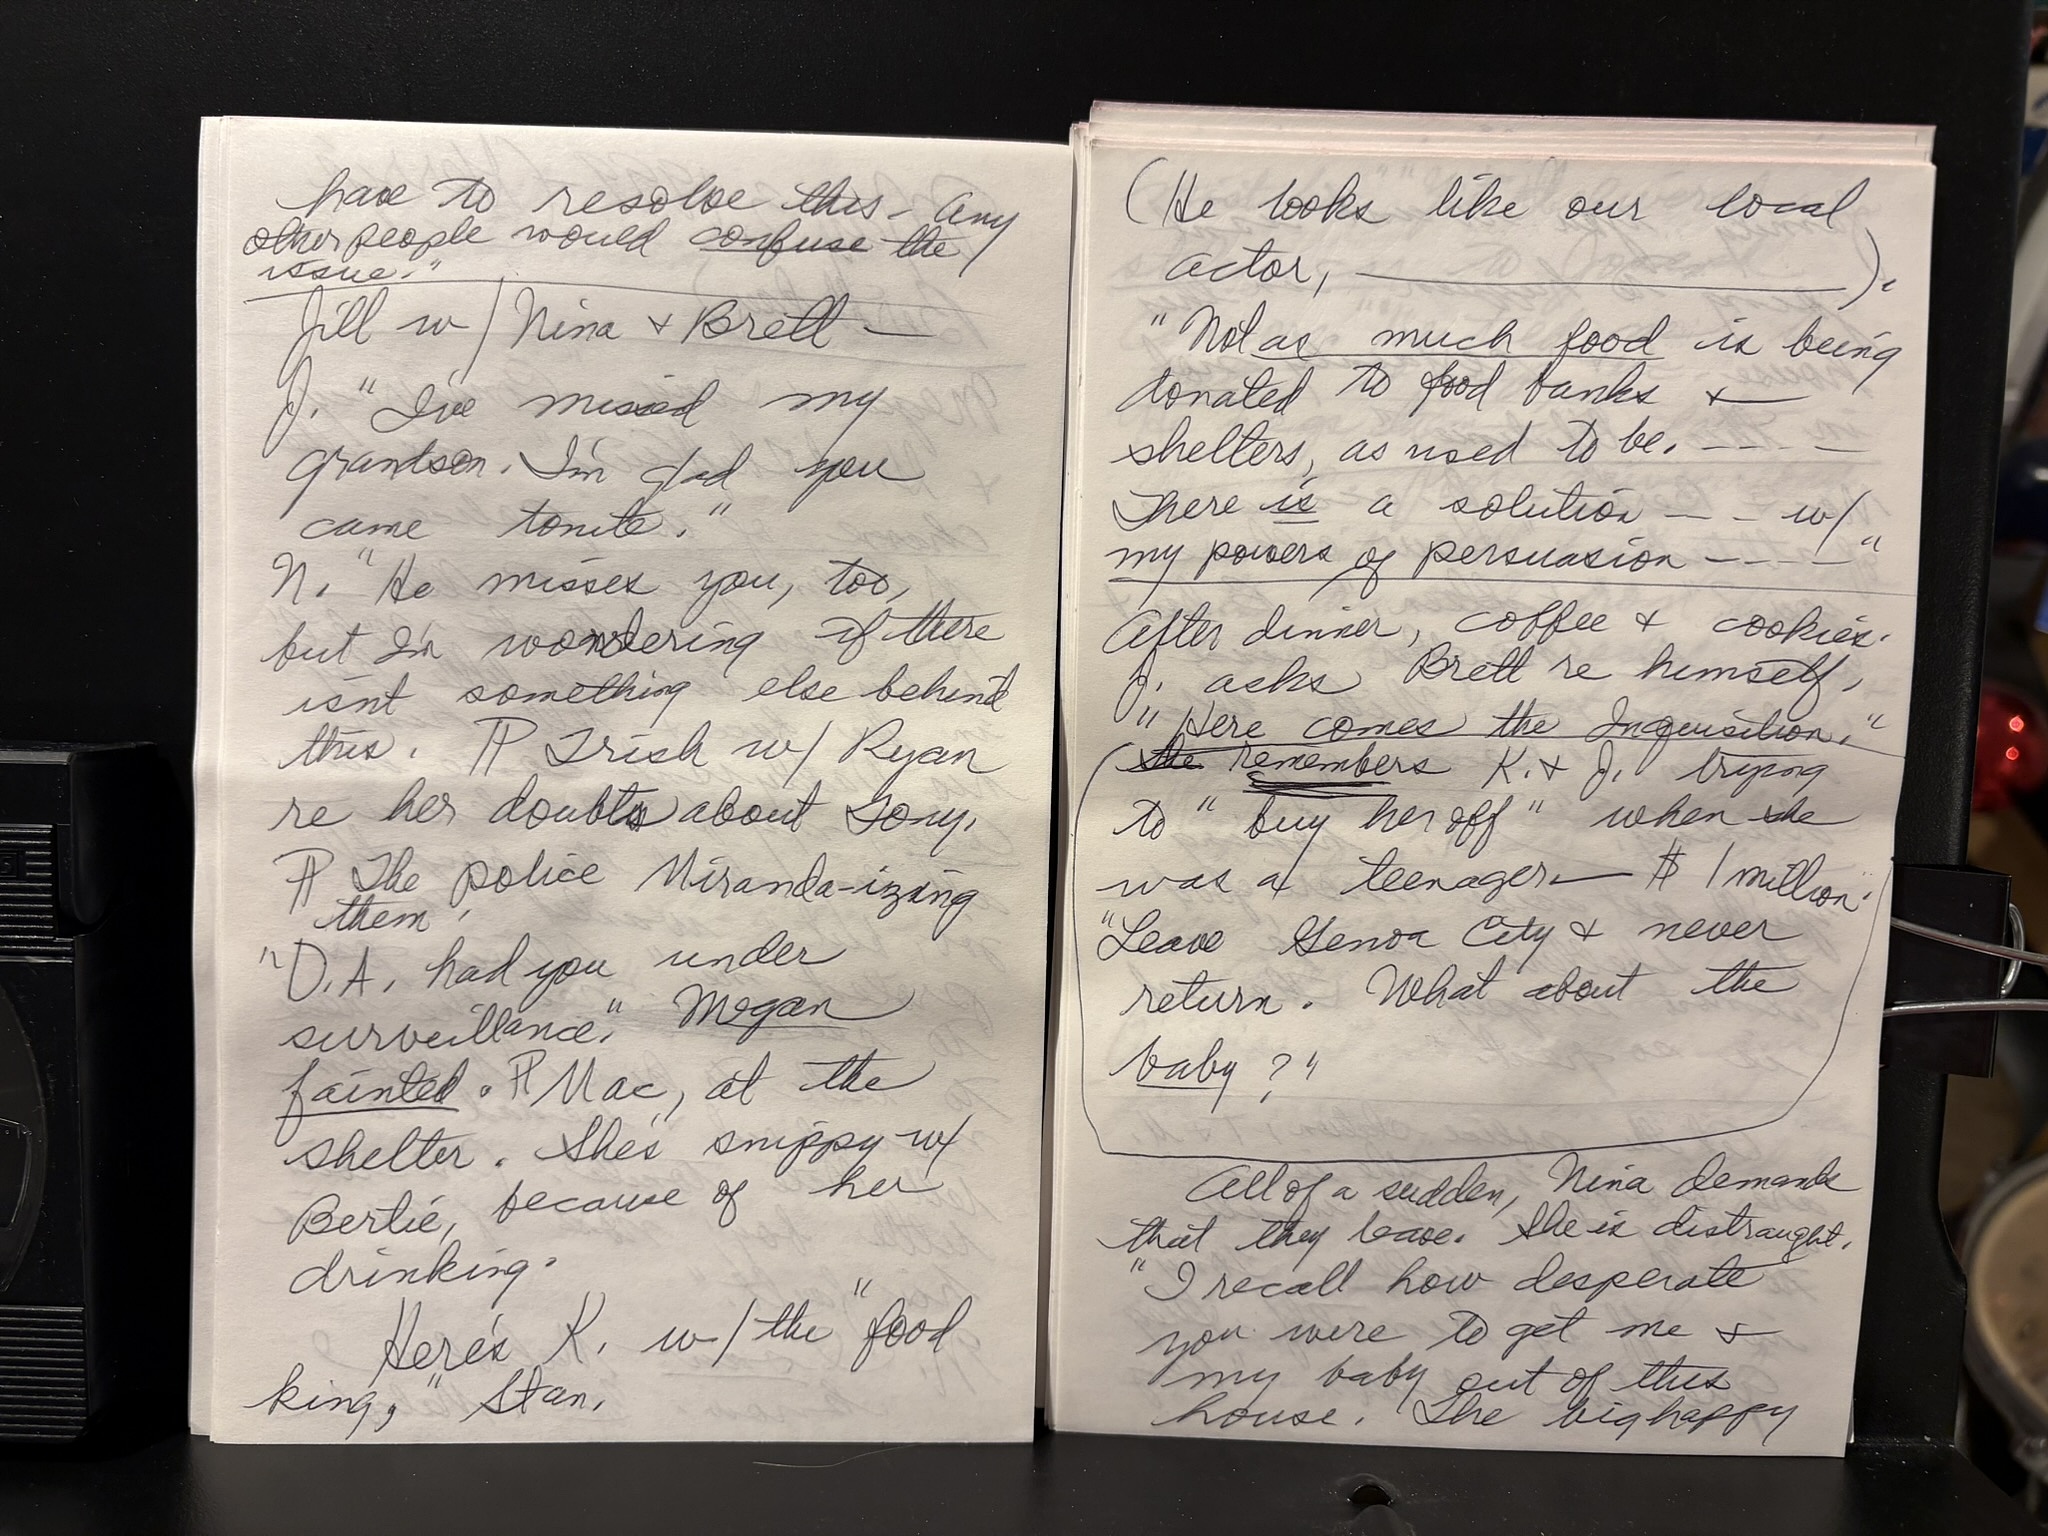 have to resolve this - Any
other people would confuse the
issue."
Jill w/ Nina & Brett —
J. "I've missed my
grandson. I'm glad you
came tonite."
N. "He misses you, too,
but I'm wondering if there
isnt something else behind
this. ¶ Trish w/ Ryan
re her doubts about Tony.
¶ The police Miranda-izing
them.
"D.A. had you under
surveillance." Megan
fainted. ¶ Mac, at the
shelter. She's snippy w/
Bertie, because of her
drinking.
Here's K. w/ the "food
king," Stan.
(He looks like our local
actor, ____________).
"Not as much food is being
donated to food banks & —
shelters, as used to be. - - - -
There is a solution - - - w/
my powers of persuasion - - - - "
After dinner, coffee & cookies.
J. asks Brett re himself,
"Here comes the Inquisition."
(She remembers K. & J. trying
to "buy her off" when she
was a teenager — $1 million.
"Leave Genoa City & never
return. What about the
baby?"
All of a sudden, Nina demands
that they leave. She is distraught.
"I recall how desperate
you were to get me &
my baby out of this
house. The big happy